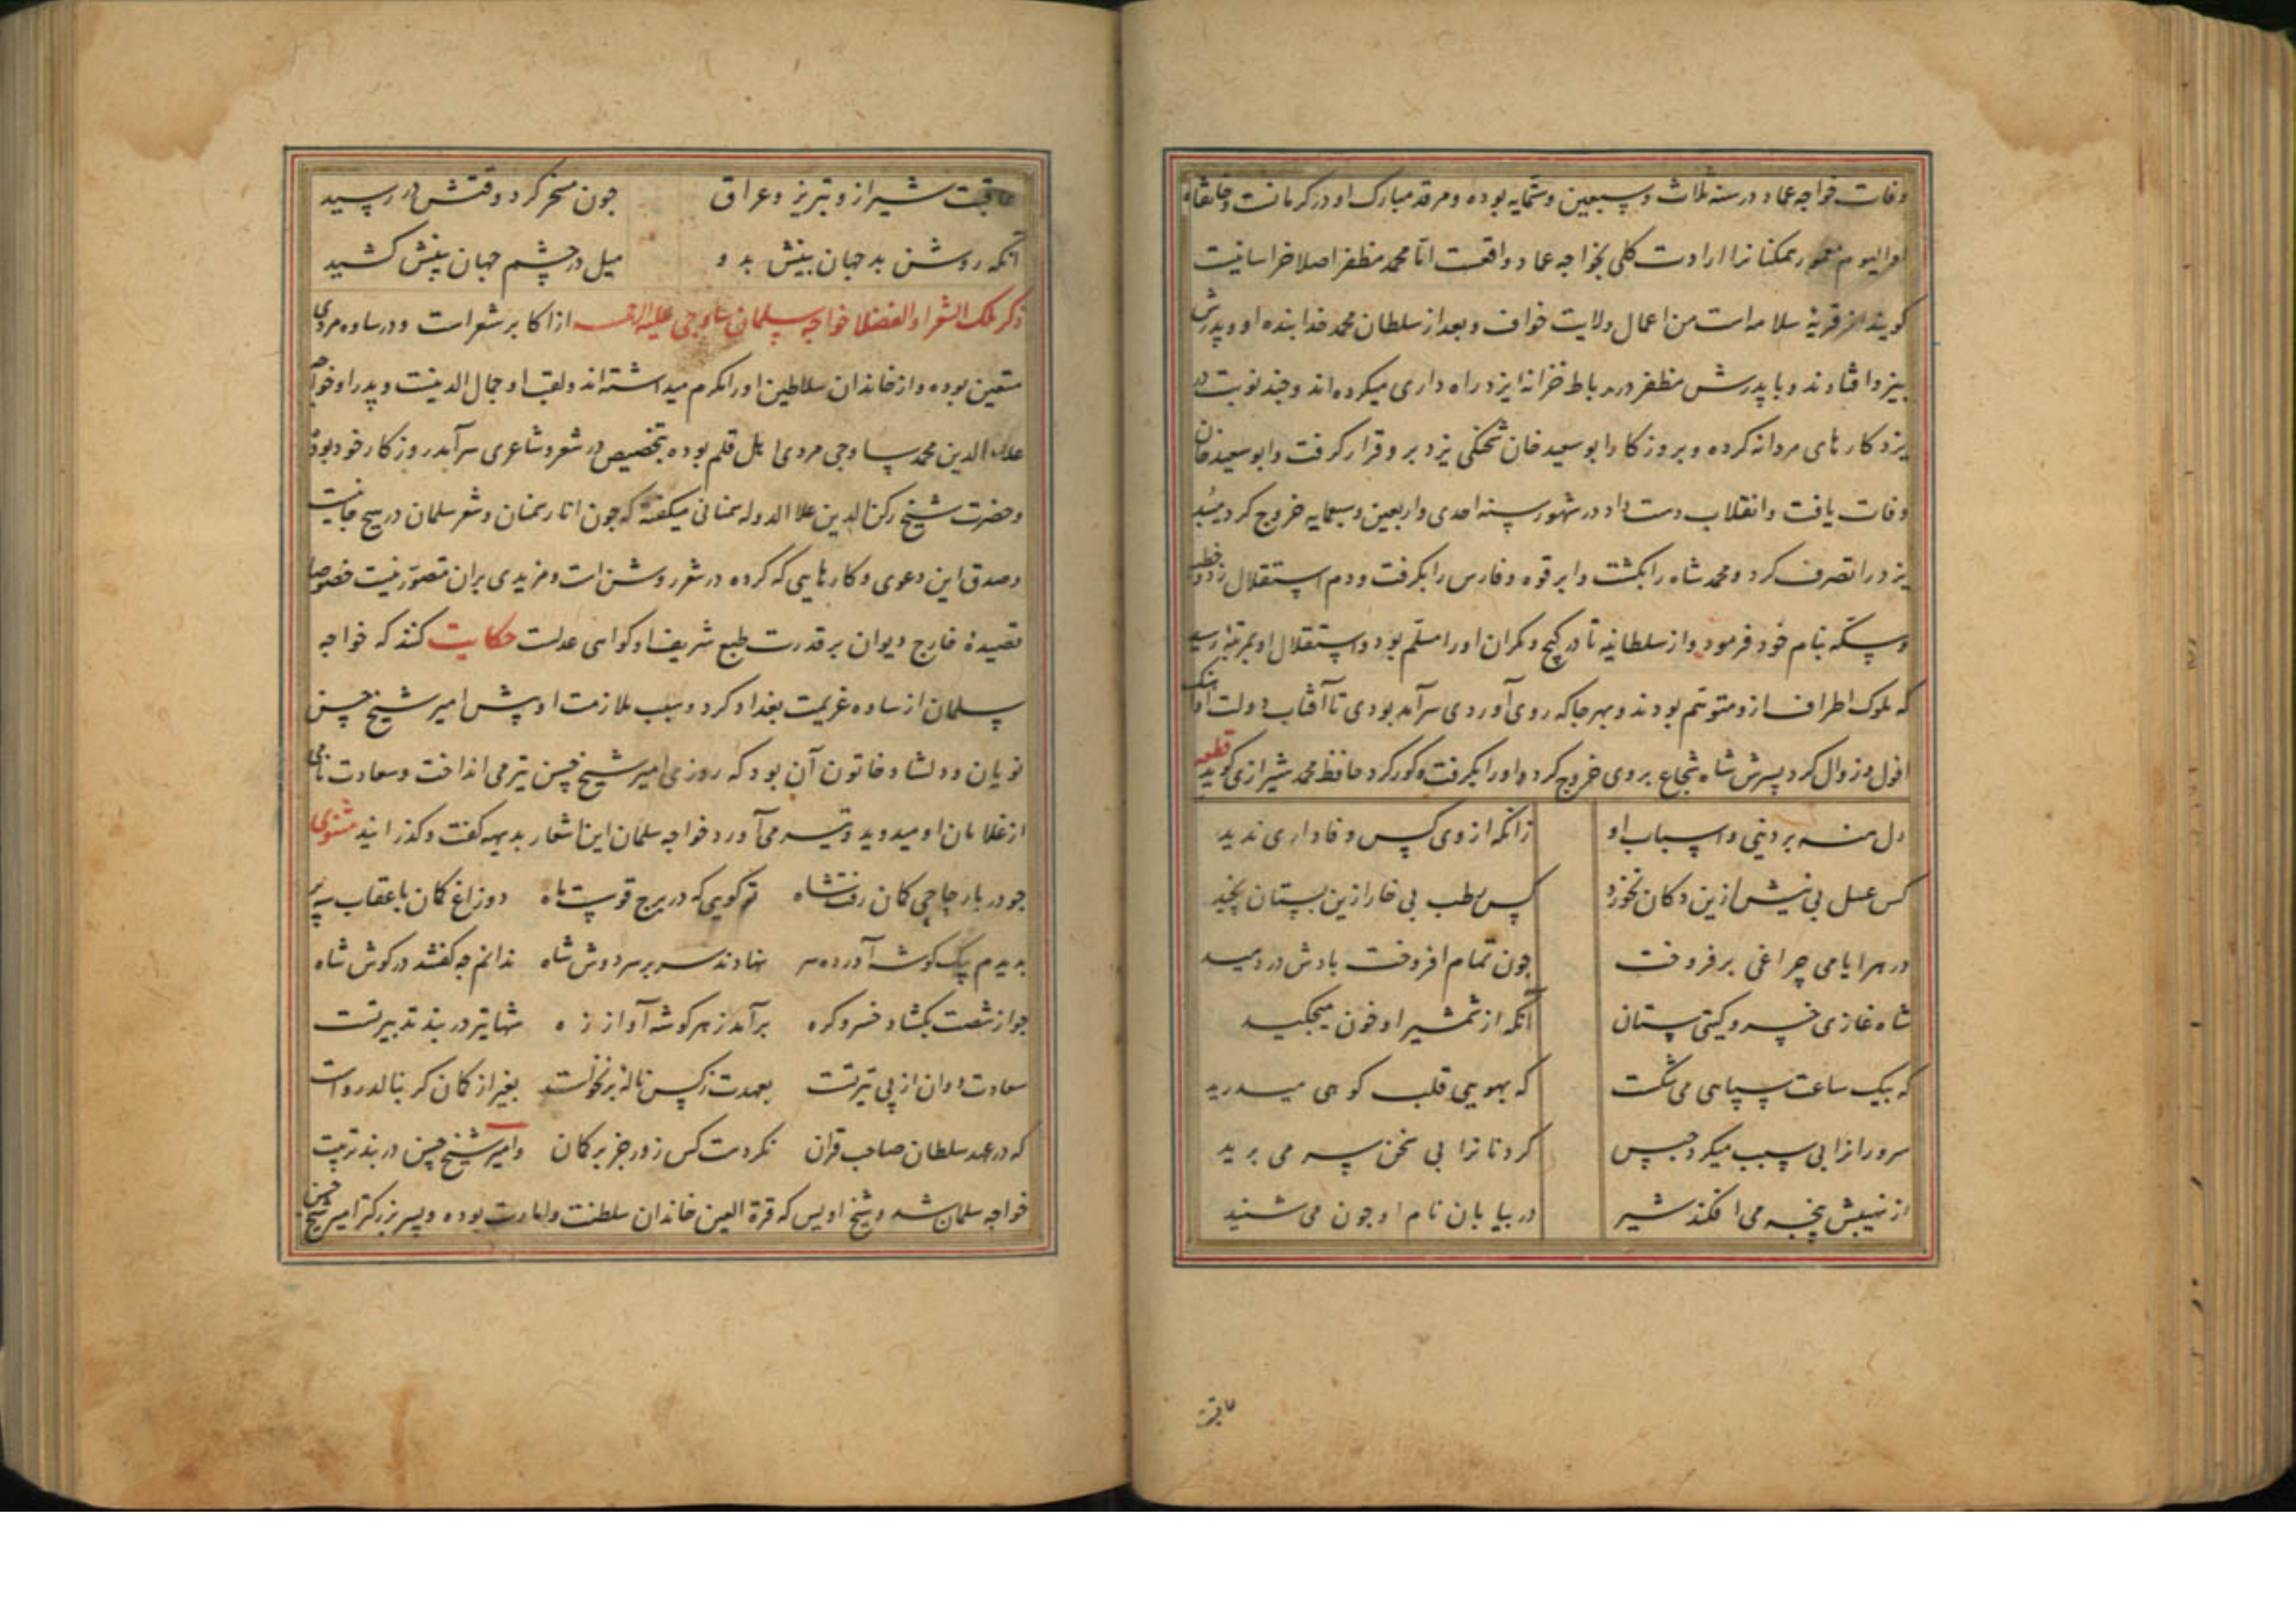 وفات خواجه عماد در سنه ثلاث و سبعین و ستمایه بوده و مرقد مبارک او در کرمانست و خانقاه
او الیوم معمور ممکنانرا ارادت کلی بخواجه عماد واقعست اما محمد مظفر اصلا خراسانیست
کویند از قریهٔ سلامه است من اعمال ولایت خواف و بعد از سلطان محمد خدابنده او و پدرش
بیزد افتادند و با پدرش مظفر در رباط خرانه ایزد راه داری میکرده اند و چند نوبت در
یزد کارهای مردانه کرده و بروزکار ابو سعید خان شحنکی یزد برو قرار کرفت و ابو سعید خان
وفات یافت و انقلاب دست داد در شهور سنه احدی و اربعین و سبعمایه خروج کرد
یزد را تصرف کرد و محمد شاه را بکشت و ابرقوه و فارس را بکرفت و دم استقلال زد و خطبه
و سکه بنام خود فرمود و از سلطانیه تا در کیج و مکران او را مسلم بود و استقلال او بمرتبه رسید
که ملوک اطراف ازو متوهم بودند و بهر جا که روی آوردی سرآمد بودی تا آفتاب دولت او
افول و زوال کرد پسرش شاه شجاع بروی خروج کرد و او را بکرفت و کور کرد حافظ محمد شیرازی کوید قطعه
دل منه بر دنیی و اسباب او زانکه از وی کس وفاداری ندید
کس عسل بی نیش ازین دکان نخورد کس رطب بی خار ازین بستان نچید
در هر ایامی چراغی برفروخت چون تمام افروخت بادش در دمید
شاه غازی خسرو کیتی ستان آنکه از شمشیر او خون میچکید
که بیک ساعت سپاهی می شکست که بهویی قلب کوهی میدرید
سرورانرا بی سبب میکرد حبس کردنانرا بی سخن سر می برید
از نهیبش پنجه می افکند شیر در بیابان نام او چون می شنید
عاقبت
عاقبت شیراز و تبریز و عراق چون مسخر کرد وقتش در رسید
آنکه روشن بد جهان بینش بدو میل در چشم جهان بینش کشید
ذکر ملک الشعرا و الفضلا خواجه سلمان ساوجی علیه الرحمه از اکابر شعراست و در ساوه مردی
متعین بوده و از خاندان سلاطین او را مکرم میداشته اند و لقب او جمال الدینست و پدر او خواجه
علاء الدین محمد ساوجی مردی اهل قلم بوده بتخصیص در شعر و شاعری سرآمد روزکار خود بوده
و حضرت شیخ رکن الدین علا الدوله سمنانی میکفته که چون انار سمنان و شعر سلمان در هیچ جا نیست
و صدق این دعوی و کارهایی که کرده در شعر روشن است و مزیدی بران متصور نیست خصوصا
قصیدهٔ خارج دیوان بر قدرت طبع شریف او کواهی عدلست حکایت کنند که خواجه
سلمان از ساوه عزیمت بغداد کرد و سبب ملازمت او پیش امیر شیخ حسن
نویان و دلشاد خاتون آن بود که روزی امیر شیخ حسن تیر می انداخت و سعادت نامی
از غلامان او میدوید و تیر می آورد خواجه سلمان این اشعار بدیهه کفت و کذرانید مثنوی
چو در بار چاچی کمان رفت شاه تو کویی که در برج قوست ماه دو زاغ کمان با عقاب سه پر
بدیدم بیک کوشه آورده سر نهادند سر بر سر دوش شاه ندانم چه کفتند در کوش شاه
چو از شست بکشاد خسرو کره برآمد ز هر کوشه آواز زه شها تیر در بند تدبیر تست
سعادت دوان از پی تیر تست بعهدت ز کس ناله برنخواست بغیر از کمان کر بنالد رواست
که در عهد سلطان صاحب قران نکردست کس زور جز بر کمان و امیر شیخ حسن در بند تربیت
خواجه سلمان شد و شیخ اویس که قرة العین خاندان سلطنت و امارت بوده و پسر بزرکتر امیر شیخ حسن